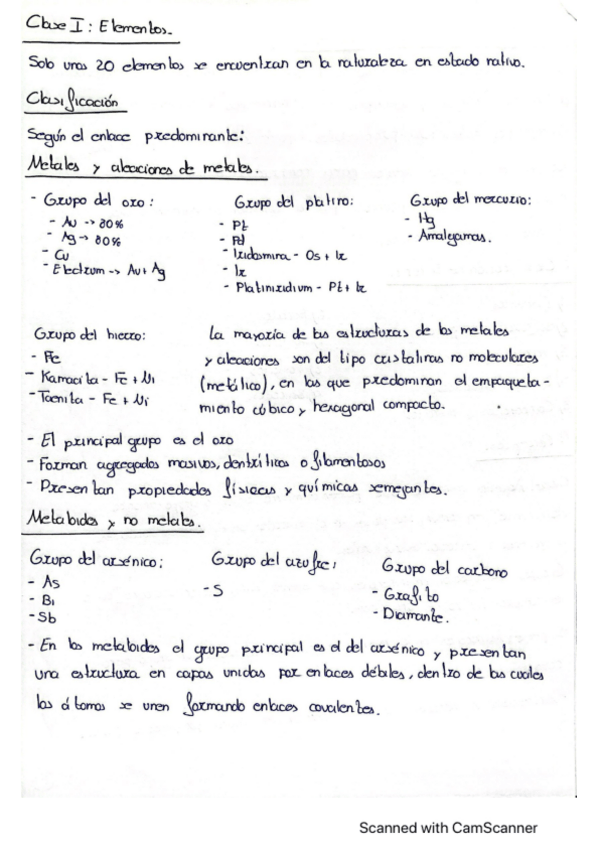 Clase I: Elementos.
Solo unos 20 elementos se encuentran en la naturaleza en estado nativo.
Clasificación
Según el enlace predominante:
Metales y aleaciones de metales.
- Grupo del oro:
- Au -> 80%
- Ag -> 80%
- Cu
- Electrum -> Au + Ag
Grupo del platino:
- Pt
- Pd
- Iridosmina - Os + Ir
- Ir
- Platiniridium - Pt + Ir
Grupo del mercurio:
- Hg
- Amalgamas.
Grupo del hierro:
- Fe
- Kamacita - Fe + Ni
- Taenita - Fe + Ni
La mayoría de las estructuras de los metales
y aleaciones son del tipo cristalinas no moleculares
(metálico), en las que predominan el empaqueta-
miento cúbico y hexagonal compacto.
- El principal grupo es el oro
- Forman agregados masivos, dentríticos o filamentosos
- Presentan propiedades físicas y químicas semejantes.
Metaloides y no metales.
Grupo del arsénico:
- As
- Bi
- Sb
Grupo del azufre:
- S
Grupo del carbono
- Grafito
- Diamante.
- En los metaloides el grupo principal es el del arsénico y presentan
una estructura en capas unidas por enlaces débiles, dentro de las cuales
los átomos se unen formando enlaces covalentes.
Scanned with CamScanner